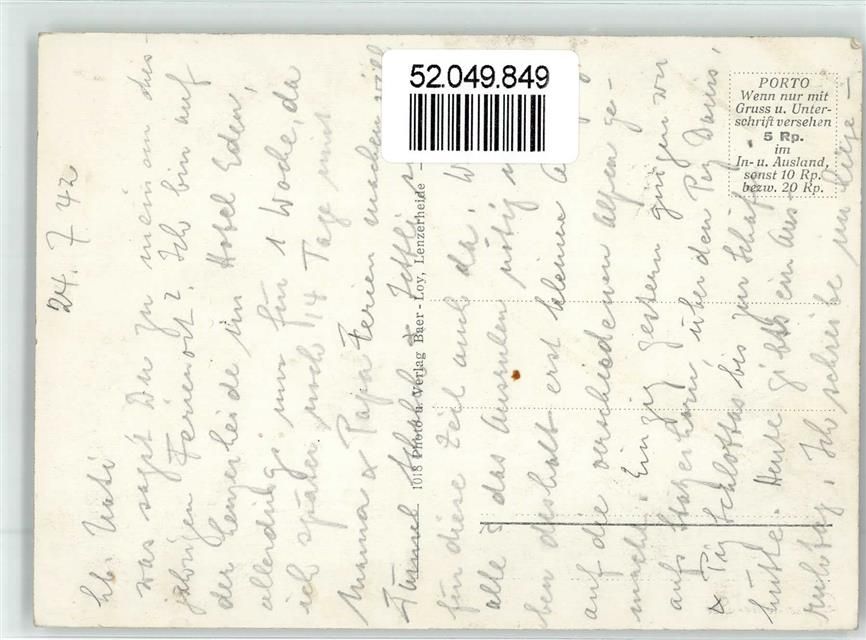 52.049.849
PORTO
Wenn nur mit
Gruss u. Unter-
schrift versehen
5 Rp.
im
In- u. Ausland,
sonst 10 Rp.
bezw. 20 Rp.
1018 Photo u. Verlag Baer-Loy, Lenzerheide
24. 7. 42
lb.
was sagst Du zu meinem dies-
jährigen Ferienort? Ich bin auf
der Lenzerheide im Hotel Eden,
allerdings nur für 1 Woche, da
ich später noch 14 Tage mit
Mama & Papa Ferien machen will
für diese Zeit auch da.
alle das Ausruhen nötig
ben deshalb erst kleinen
auf die verschiedenen Alpen ge-
macht. Einzig gestern gingen wir
aufs Stätzerhorn über den Piz Danis,
& Piz bis zur
hütte. Heute gibts ein Aus-
ruhtag. Ich schreibe im Liege-